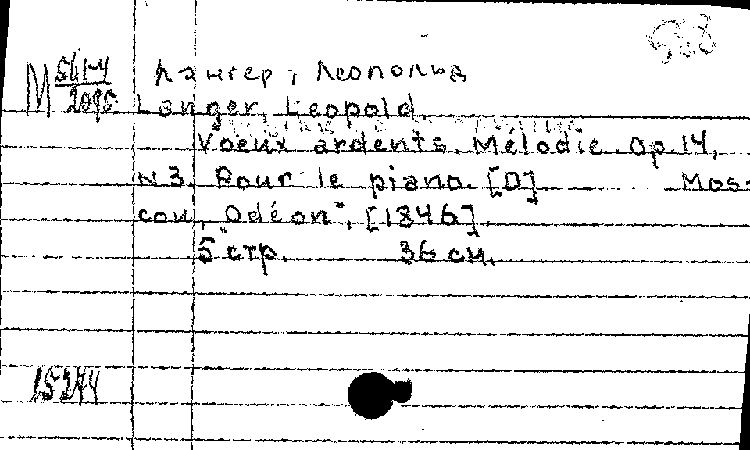 М 561-4
2095
Лангер, Леопольд
Langer, Leopold.
Voeux ardents. Mélodie. Op. 14,
N 3. Pour le piano. [D] Mos-
cou, "Odéon", [1846].
5 стр. 36 см.
15244